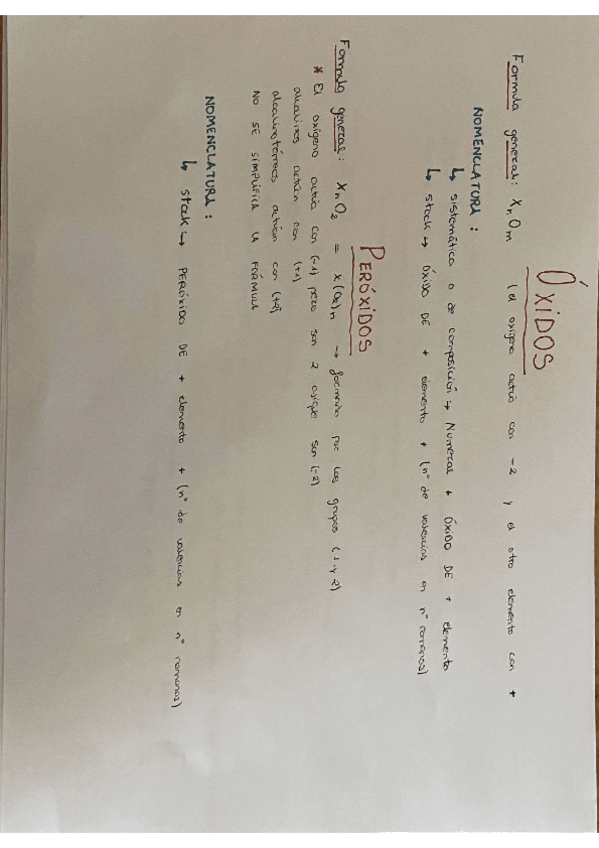 ÓXIDOS
Formula general: XnOm (el oxígeno actúa con -2 y el otro elemento con +
NOMENCLATURA:
↳ sistemática o de composición → Numeral + ÓXIDO DE + elemento
↳ stock → ÓXIDO DE + elemento + (nº de valencias en nº romanos)
PERÓXIDOS
Formula general: XnO2 = X(O2)n → formados por los grupos (1 y 2)
* El oxígeno actúa con (-1) pero son 2 asique son (-2)
alcalinos actúan con (+1)
alcalinotérreos actúan con (+2)
NO SE SIMPLIFICA LA FÓRMULA
NOMENCLATURA:
↳ stock → PERÓXIDO DE + elemento + (nº de valencias en nº romanos)